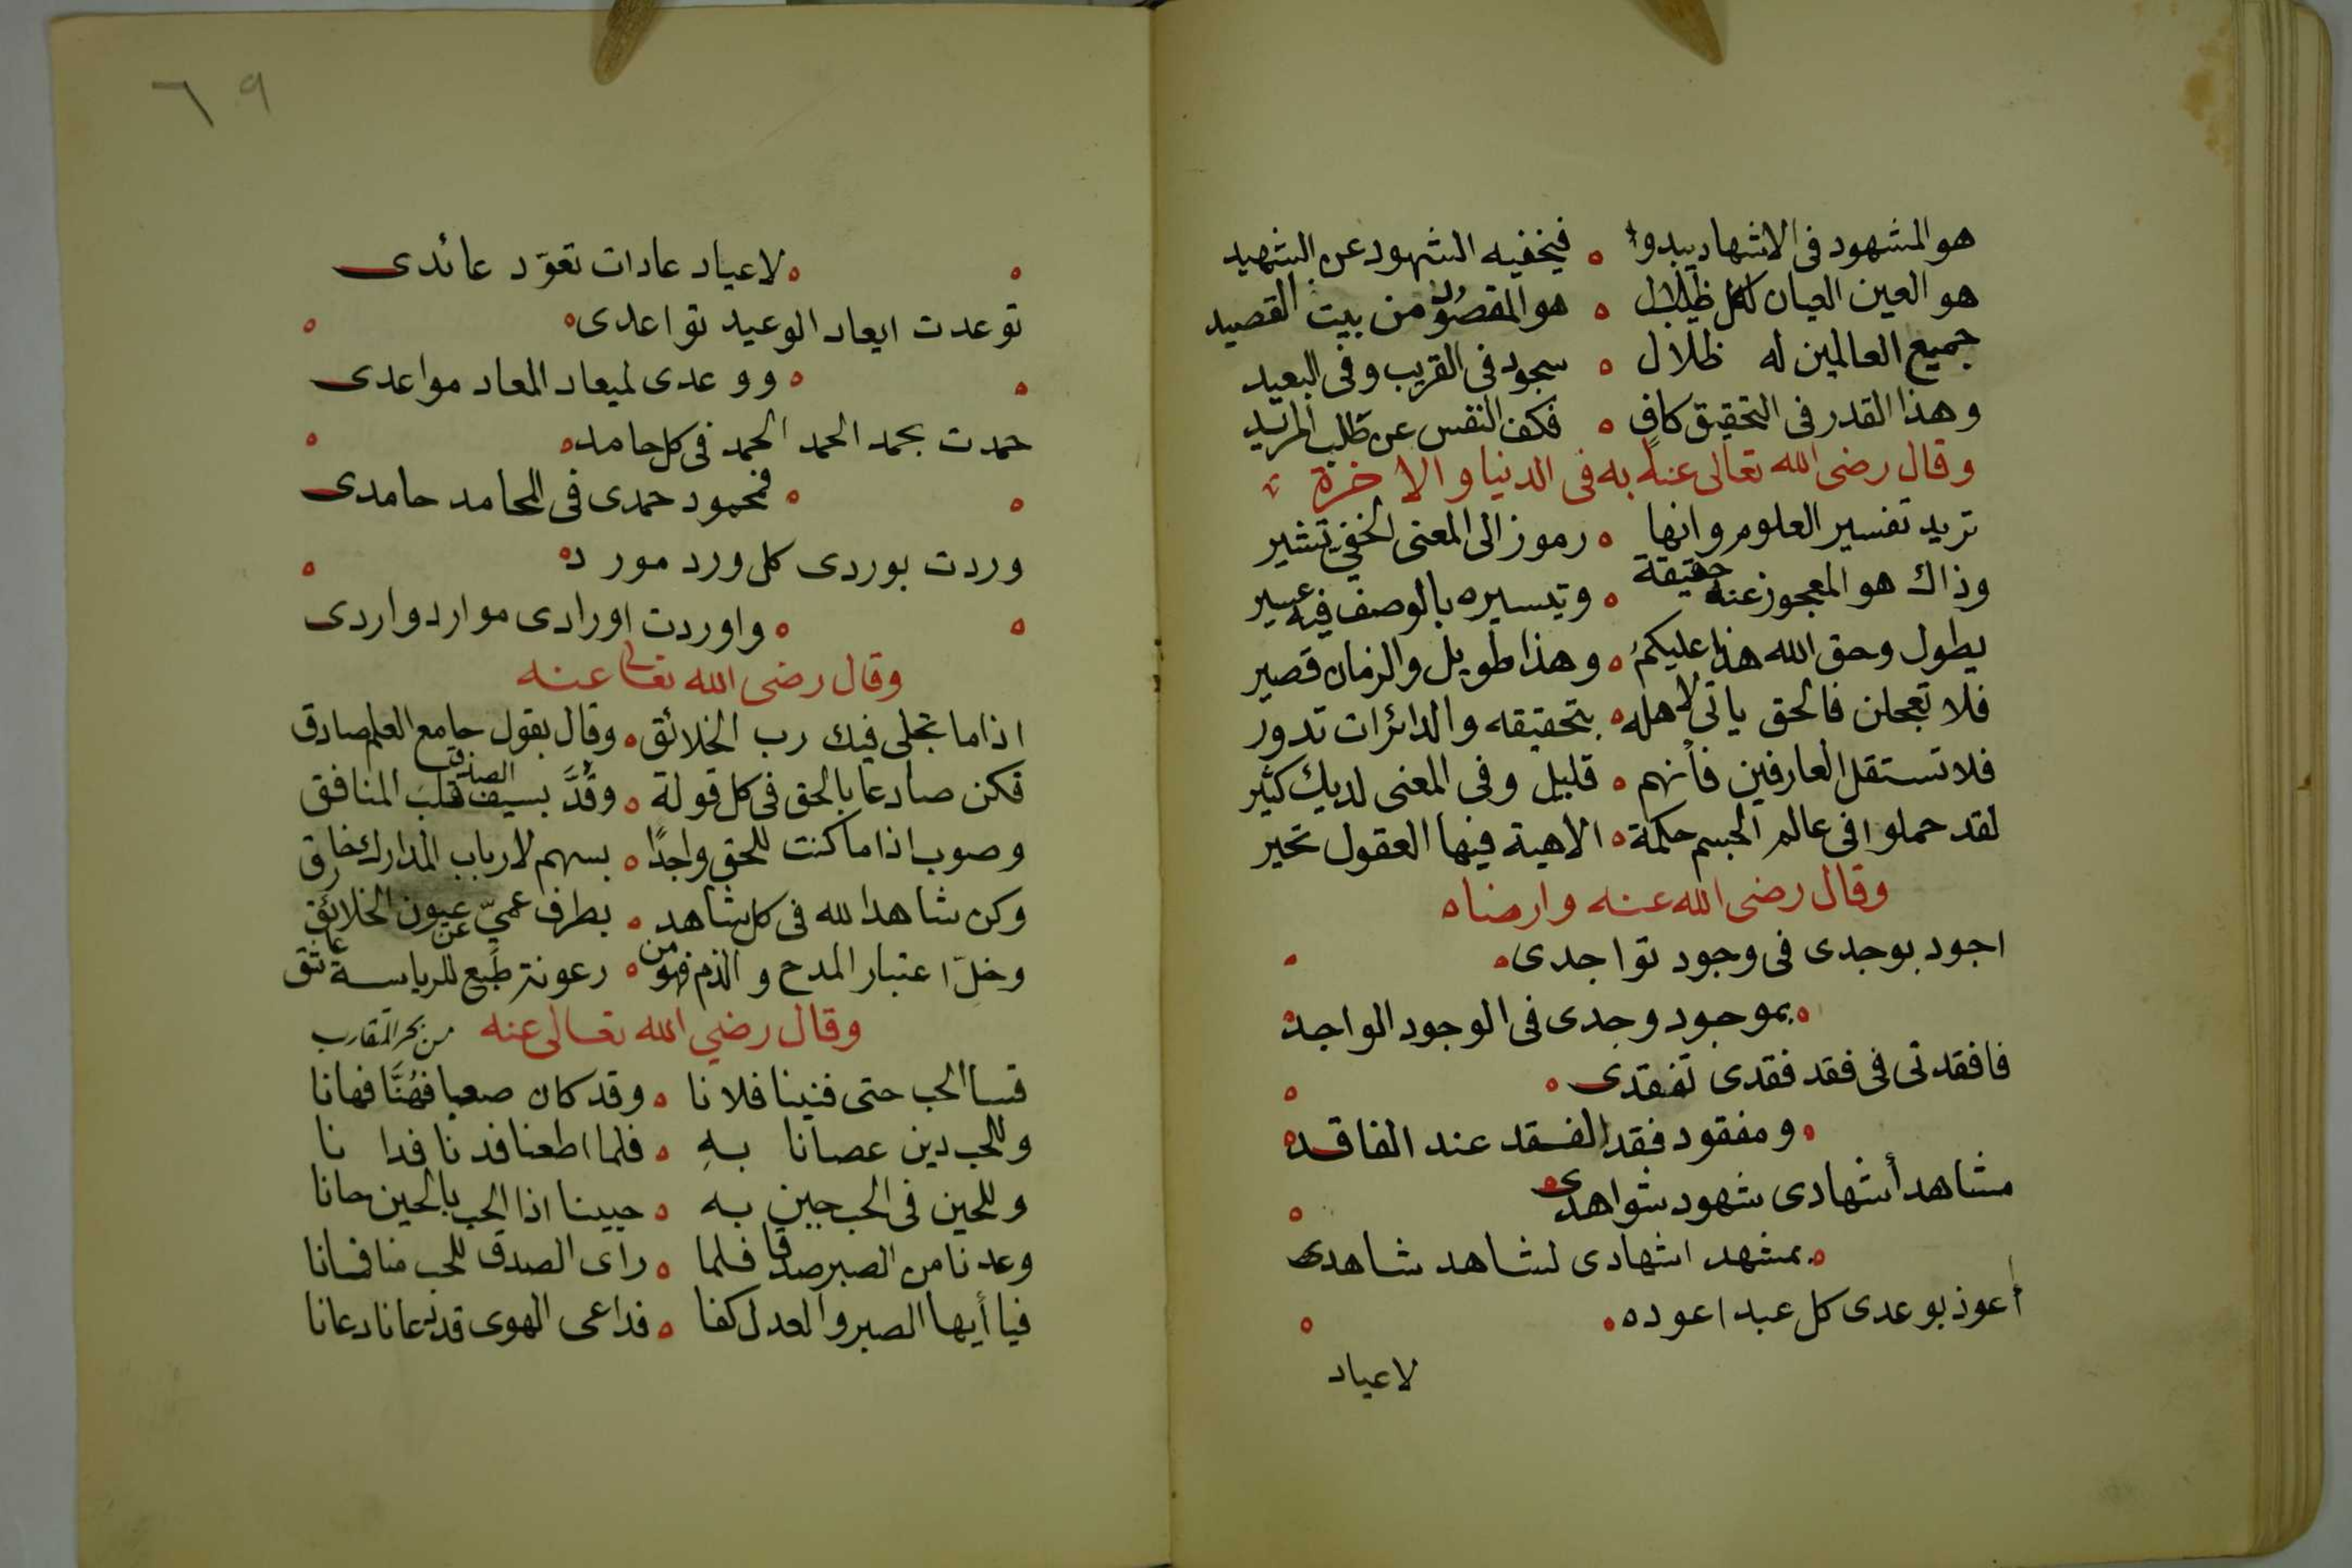 هو المشهود فى الاشهاد يبدو ه فيخفيه الشهود عن الشهيد
هو العين العيان لكل ظلال ه هو المقصود من بيت القصيد
جميع العالمين له ظلال ه سجود فى القريب وفى البعيد
وهذا القدر فى التحقيق كافٍ ه فكف النفس عن طلب المزيد
وقال رضى الله تعالى عنه به فى الدنيا والاخرة
تريد تفسير العلوم وانها ه رموز الى المعنى الخفي تشير
وذاك هو المعجوز عنه حقيقة ه وتيسيره بالوصف فيه عسير
يطول وحق الله هذا عليكمُ ه وهذا طويل والزمان قصير
فلا تعجلن فالحق ياتى لاهله ه بتحقيقه والدائرات تدور
فلا تستقل العارفين فأنهم ه قليل وفى المعنى لديك كثير
لقد حملوا فى عالم الجسم حكمة ه الاهية فيها العقول تحير
وقال رضى الله عنه وارضاه
اجود بوجدى فى وجود تواجدى ه
ه بموجود وجدى فى الوجود الواجد
فافقدنى فى فقد فقدى تفقدى ه
ه ومفقود فقد الفقد عند الفاقد
مشاهد أشهادى شهود شواهدى
ه بمشهد اشهادى لشاهد شاهدى
أعوذ بوعدى كل عبد اعوده ه
لاعياد
٦٩
ه لاعياد عادات تعوّد عائدى
توعدت ايعاد الوعيد تواعدى ه
ه ووعدى لميعاد المعاد مواعدى
حمدت بحمد الحمد الحمد فى كل حامد ه
ه فمحمود حمدى فى المحامد حامدى
وردت بوردى كل ورد مورد ه
ه واوردت اورادى موارد واردى
وقال رضى الله تعالى عنه
اذا ما تجلى فيك رب الخلائق ه وقال بقول جامع العلم صادق
فكن صادعا بالحق فى كل قولة ه وقُدَّ بسيف الصدق قلبَ المنافق
وصوب اذا ما كنت للحق واجدًا ه بسهم لارباب المدارك خارق
وكن شاهدا لله فى كل شاهد ه بطرف عميّ عن عيون الخلائق
وخلّ اعتبار المدح والذم فهو من ه رعونة طبع للرياسة عاتق
وقال رضي الله تعالى عنه من بحر المتقارب
قسا الحب حتى فنينا فلانا ه وقد كان صعبا فهُنَّا فهانا
وللحب دين عصانا به ه فلما اطعنا فدنا فدانا
وللحين فى الحب حين به ه حيينا اذا الحب بالحين حانا
وعدنا من الصبر صدقا فلما ه راى الصدق للحب منا فسانا
فيا أيها الصبر والعدل كفا ه فداعى الهوى قد دعانا دعانا